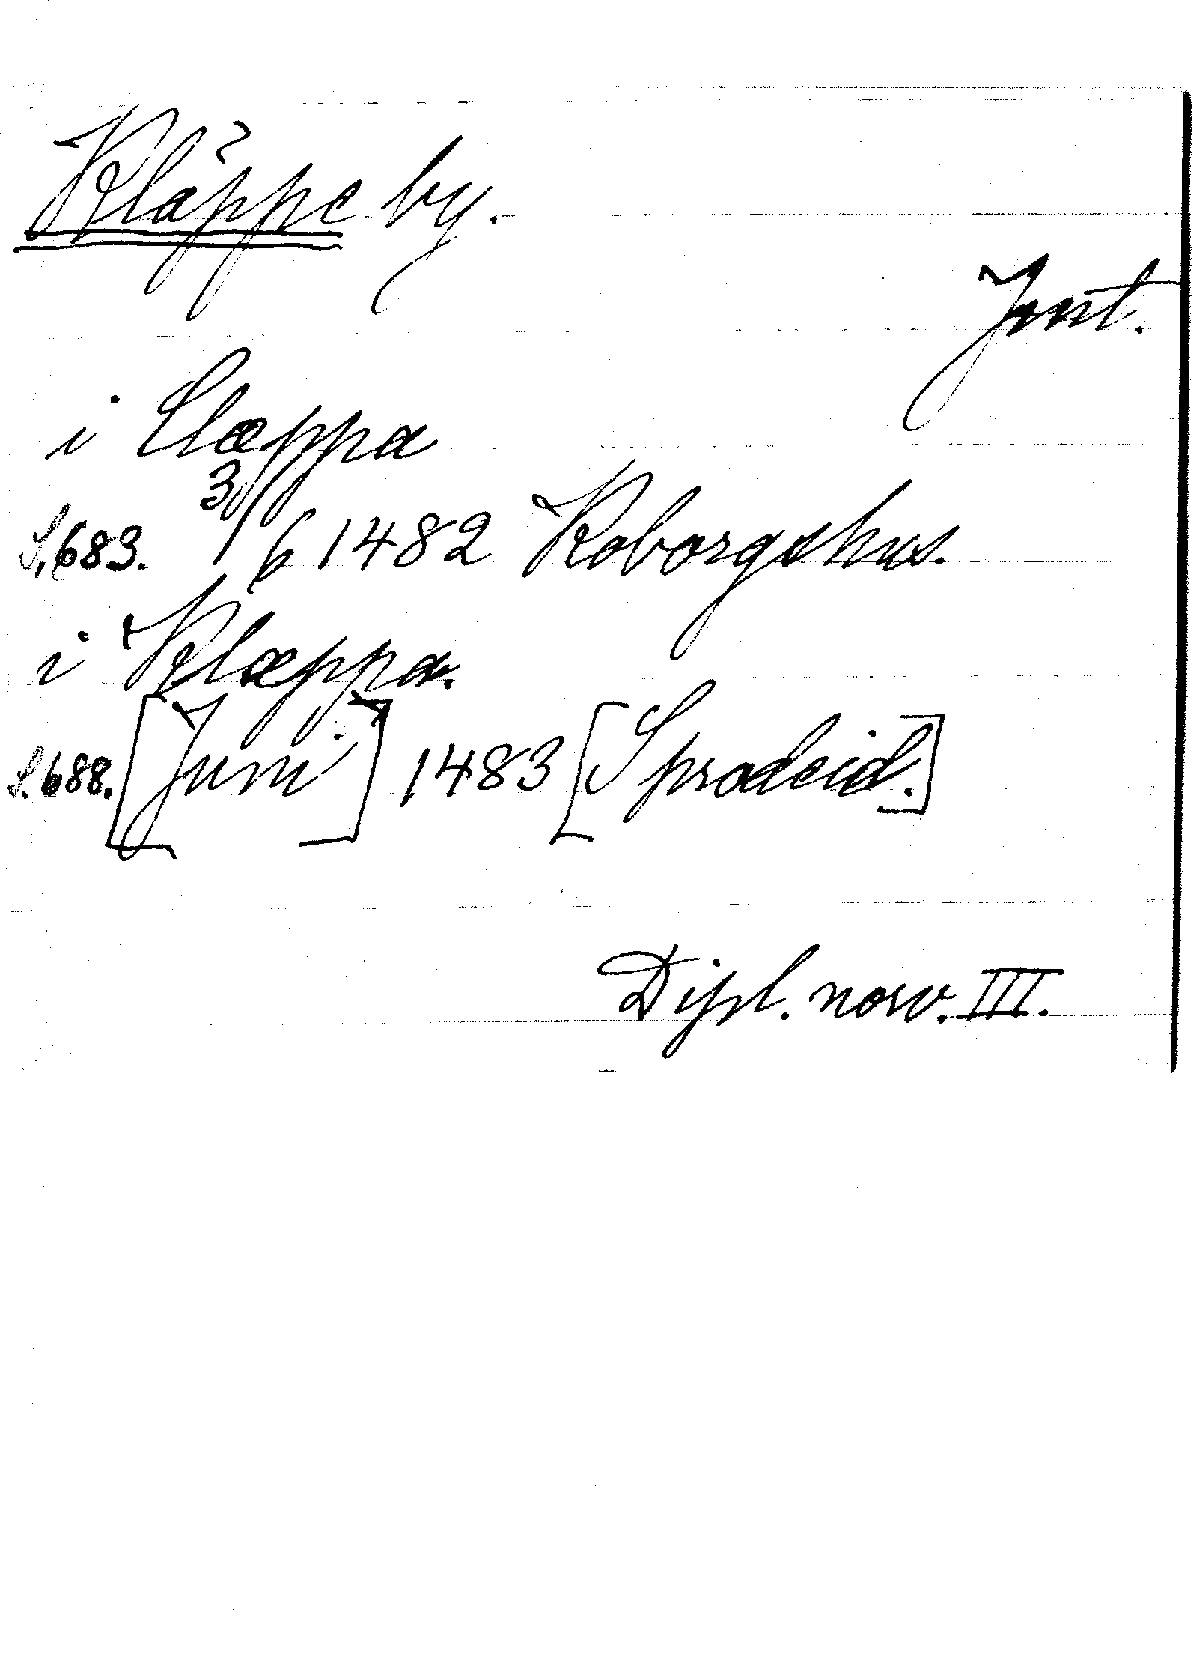 Kläppe by.
Jmt.
i Clæppa
S. 683. 3/6 1482 Koborgshus.
i Klæppa.
S. 688. [Juni] 1483 [Sproteid.]
Dipl. norv. III.